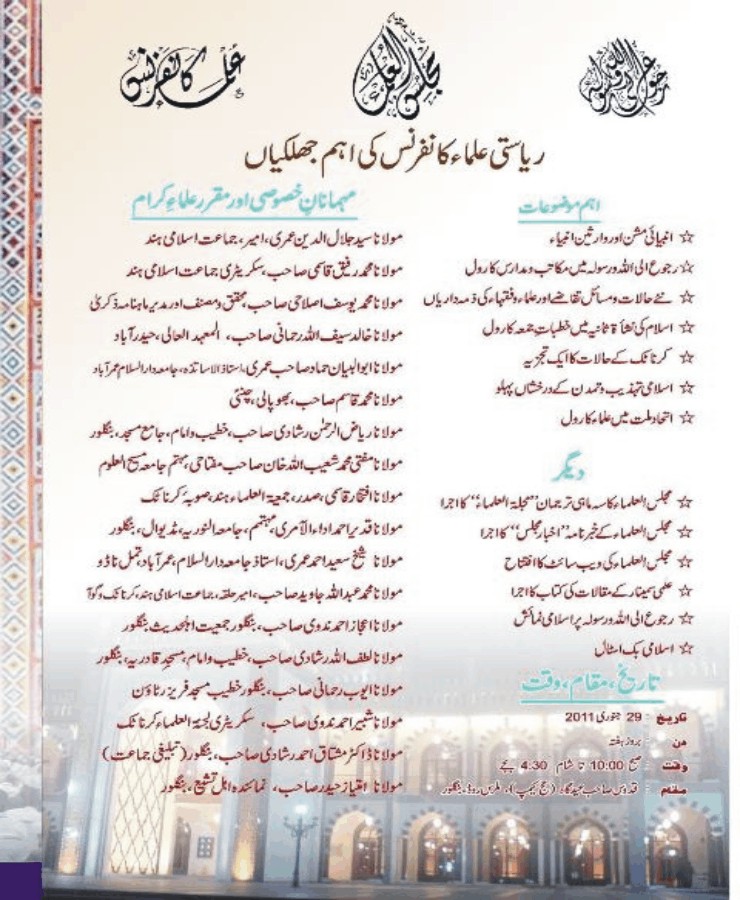 رجوع الی اللہ ورسولہ
مجلس العلماء
علماء کانفرنس
ریاستی علماء کانفرنس کی اہم جھلکیاں
اہم موضوعات
☆ انبیائی مشن اور وارثین انبیاء
☆ رجوع الی اللہ ورسولہ میں مکاتب و مدارس کا رول
☆ نئے حالات و مسائل تقاضے اور علماء و فقہاء کی ذمہ داریاں
☆ اسلام کی نشأۃ ثانیہ میں خطبات جمعہ کا رول
☆ کرناٹک کے حالات کا ایک تجزیہ
☆ اسلامی تہذیب و تمدن کے درخشاں پہلو
☆ اتحاد ملت میں علماء کا رول
دیگر
☆ مجلس العلماء کا سہ ماہی ترجمان ”مجلۃ العلماء“ کا اجرا
☆ مجلس العلماء کے خبر نامہ ”اخبار مجلس“ کا اجرا
☆ مجلس العلماء کی ویب سائٹ کا افتتاح
☆ علمی سیمینار کے مقالات کی کتاب کا اجرا
☆ رجوع الی اللہ ورسولہ پر اسلامی نمائش
☆ اسلامی بک اسٹال
تاریخ، مقام، وقت
تاریخ : 29 جنوری 2011
دن : بروز ہفتہ
وقت : صبح 10:00 تا شام 4:30 بجے
مقام : قدوس صاحب عیدگاہ (حج کیمپ)، ملرس روڈ، بنگلور
مہمانانِ خصوصی اور مقرر علماءِ کرام
مولانا سید جلال الدین عمری، امیر، جماعت اسلامی ہند
مولانا محمد رفیق قاسمی صاحب، سکریٹری جماعت اسلامی ہند
مولانا محمد یوسف اصلاحی صاحب، محقق و مصنف اور مدیر ماہنامہ ذکریٰ
مولانا خالد سیف اللہ رحمانی صاحب، المعہد العالی، حیدرآباد
مولانا ابوالبیان حماد صاحب عمری، استاذ الاساتذہ، جامعہ دارالسلام عمرآباد
مولانا محمد قاسم صاحب، بھوپالی، چنئی
مولانا ریاض الرحمٰن رشادی صاحب، خطیب و امام، جامع مسجد، بنگلور
مولانا مفتی محمد شعیب اللہ خان صاحب مفتاحی، مہتمم جامعہ مسیح العلوم
مولانا افتخار قاسمی، صدر، جمعیۃ العلماء ہند، صوبۂ کرناٹک
مولانا قدیر احمد اداء الآمری، مہتمم، جامعہ النوریہ، مڈیوال، بنگلور
مولانا شیخ سعید احمد عمری، استاذ جامعہ دارالسلام، عمرآباد، تمل ناڈو
مولانا محمد عبداللہ جاوید صاحب، امیر حلقہ، جماعت اسلامی ہند، کرناٹک و گوآ
مولانا اعجاز احمد ندوی صاحب، بنگلور جمعیت اہلحدیث بنگلور
مولانا لطف اللہ رشادی صاحب، خطیب و امام، مسجد قادریہ، بنگلور
مولانا ایوب رحمانی صاحب، بنگلور خطیب مسجد فریزر ٹاؤن
مولانا شبیر احمد ندوی صاحب، سکریٹری لجنۃ العلماء کرناٹک
مولانا ڈاکٹر مشتاق احمد رشادی صاحب، بنگلور (تبلیغی جماعت)
مولانا امتیاز حیدر صاحب، نمائندہ اہل تشیع، بنگلور